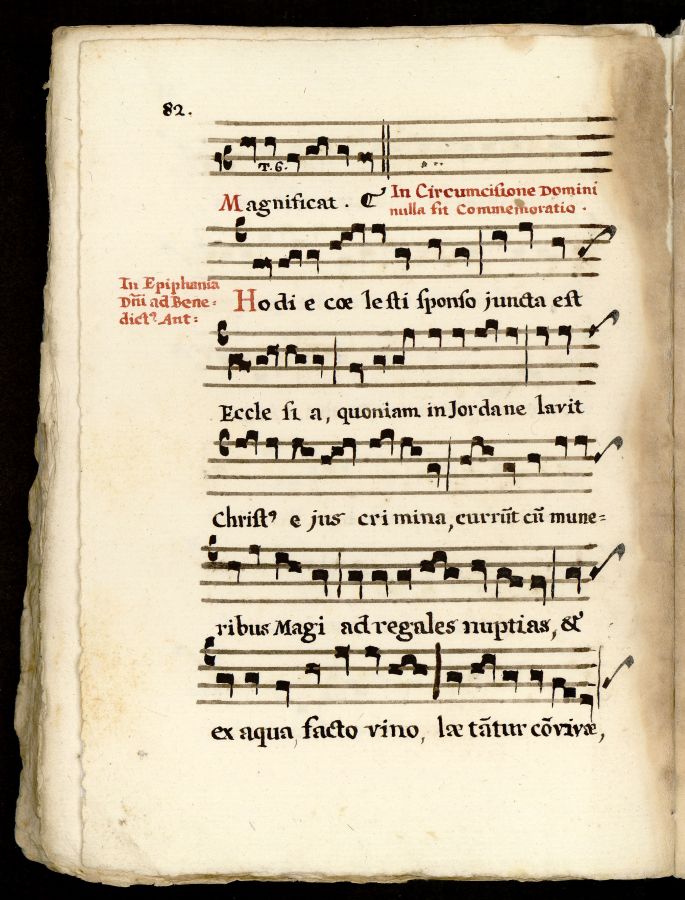 82.
T. 6.
Magnificat. In Circumcisione Domini
nulla fit Commemoratio.
In Epiphania
Dñi ad Bene=
dictꝰ. Ant:
Hodi e cœ le sti sponso juncta est
Eccle si a, quoniam in Jordane lavit
Christꝰ e jus cri mina, currūt cū mune=
ribus Magi ad regales nuptias, &
ex aqua facto vino, læ tātur cōvivæ,